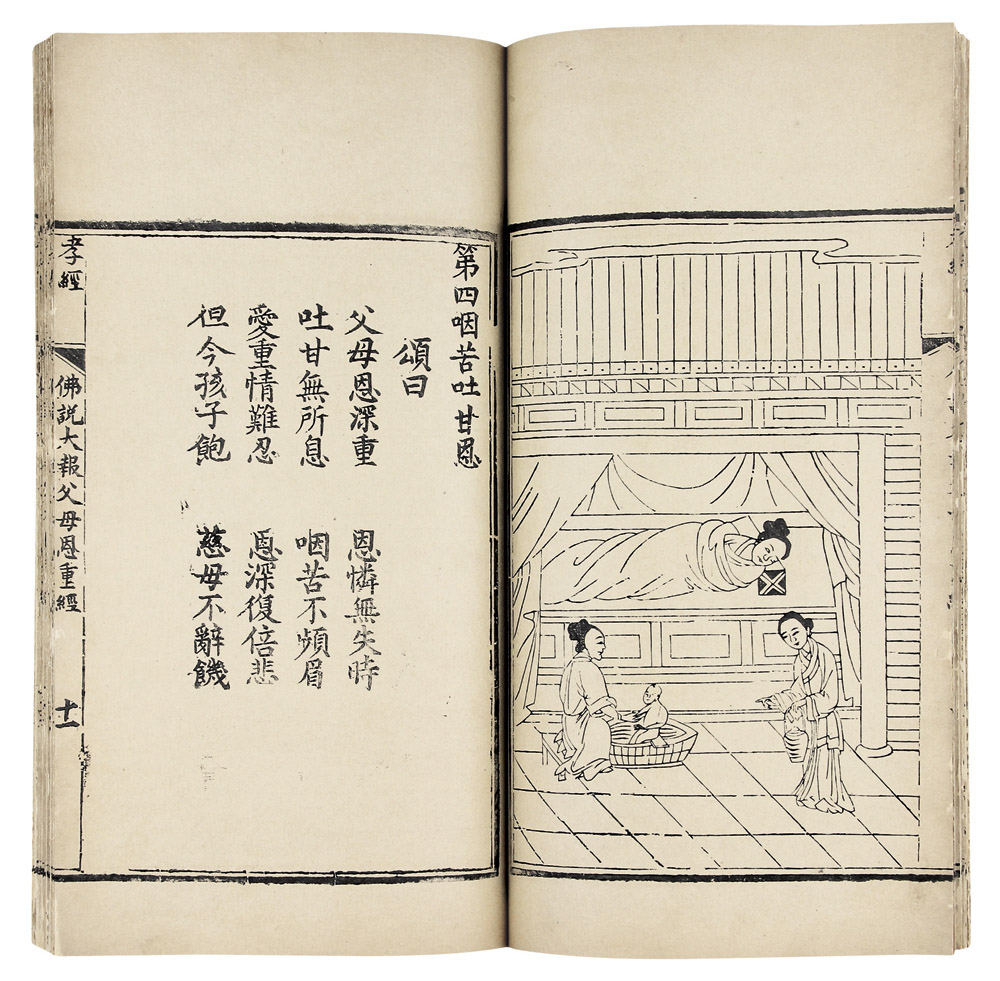 第四咽苦吐甘恩
頌曰
父母恩深重 恩憐無失時
吐甘無所息 咽苦不頻眉
愛重情難忍 恩深復倍悲
但今孩子飽 慈母不辭饑
孝經
佛説大報父母恩重經
十一